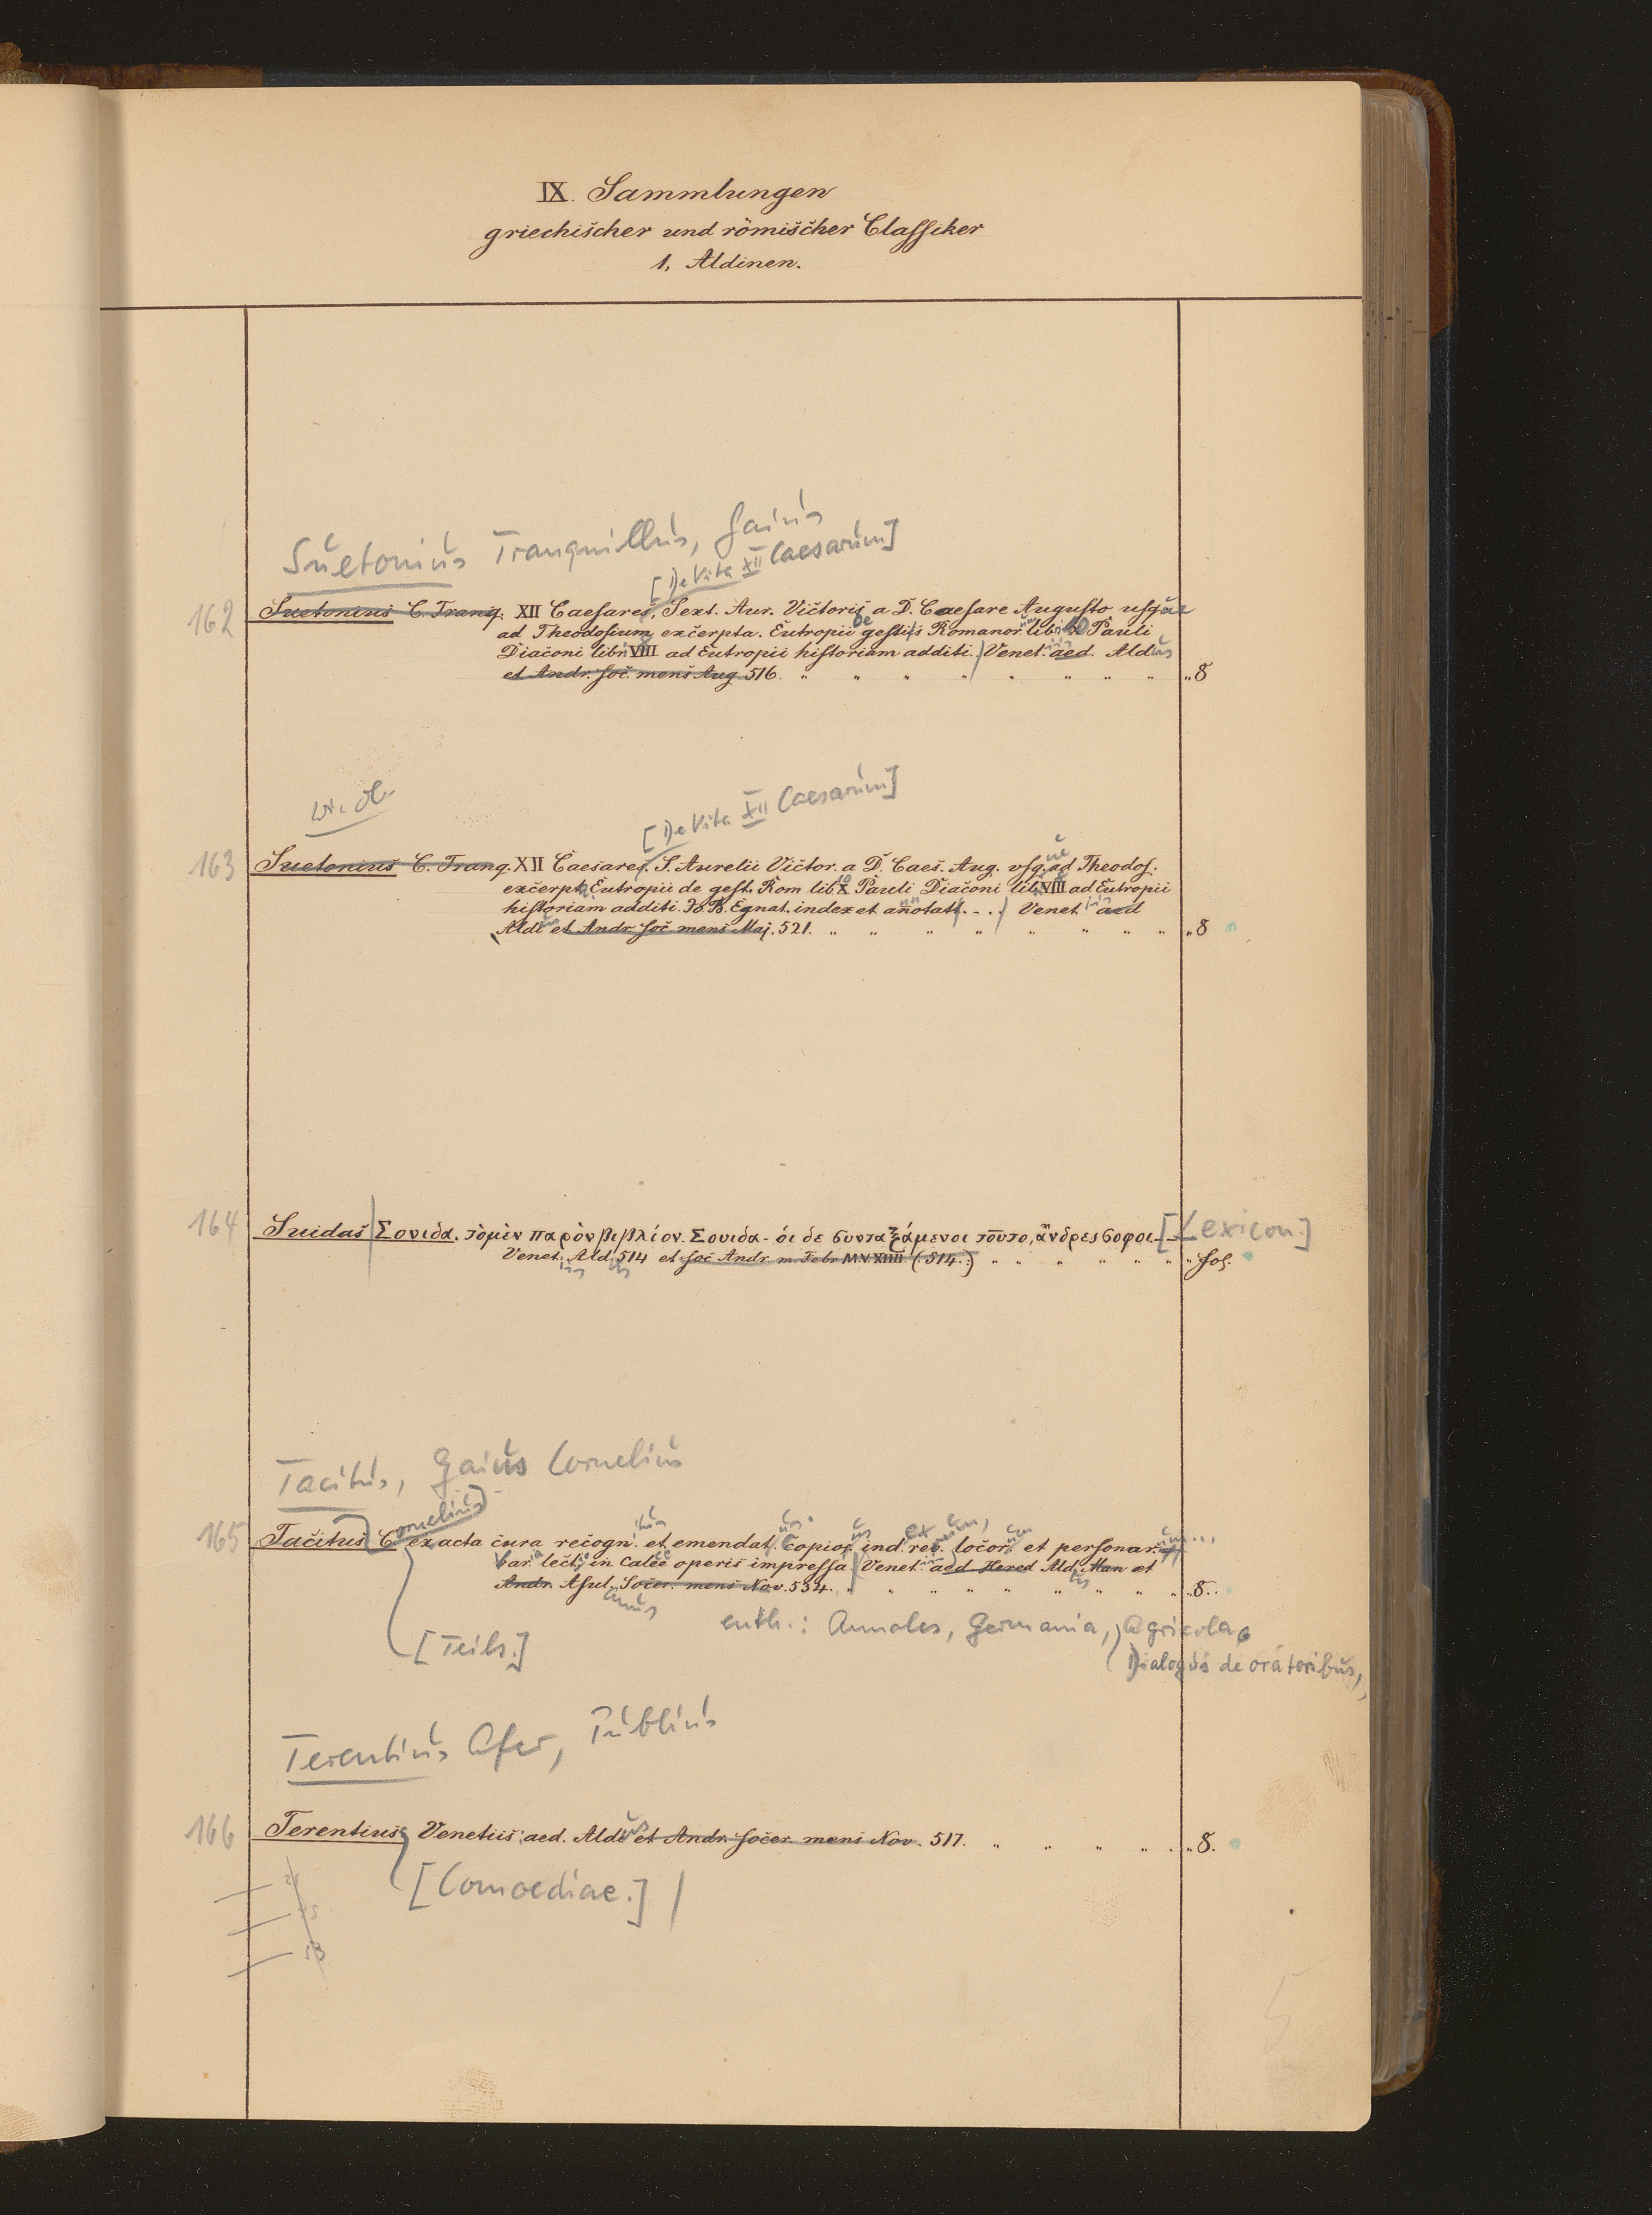 IX. Sammlungen
griechischer und römischer Classiker
1, Aldinen.
Suetonius Tranquillus, Gaius
[De Vita XII Caesarum]
162 Suetonius C. Tranq. XII Caesares, Sext. Aur. Victoris a D. Caesare Augusto usque
ad Theodosium excerpta. Eutropii de gestis Romanor. lib. 10 Pauli
Diaconi libr. VIII ad Eutropii historiam additi. Venet. aed. Aldus
et Andr. soc. mens Aug. 516. 8
w. ob.
[De Vita XII Caesarum]
163 Suetonius C. Tranq. XII Caesares. S. Aurelii Victor. a D. Caes. Aug. usq. ad Theodos.
excerpta Eutropii de gest. Rom lib X Pauli Diaconi lib. VIII ad Eutropii
historiam additi. Jo B. Egnat. index et annotatt. . . . Venet aed
Aldi et Andr. soc. mens Maj. 521. 8
164 Suidas Σουιδα. τὸ μὲν παρὸν βιβλίον. Σουιδα - ὁι δε συνταξάμενοι τοῦτο, ἄνδρες σοφοι [Lexicon.]
Venet. Ald. 514 et soc Andr m. Febr M.V.XIIII (514.) fol.
Tacitus, Gaius Cornelius
165 Tacitus C ornelius exacta cura recogn. et emendat. Copios. ind. rer. locor. et personar.
var. lect. in calce operis impressa. Venet. aed Hered Ald. Man et
Andr. Asul. Socer. mens Nov. 534. 8.
enth.: Annales, Germania, Agricola
[Teils.]
Dialogus de oratoribus,
Terentius Afer, Publius
166 Terentius Venetiis aed. Aldi et Andr. socer. mens Nov. 517. 8.
[Comoediae.]